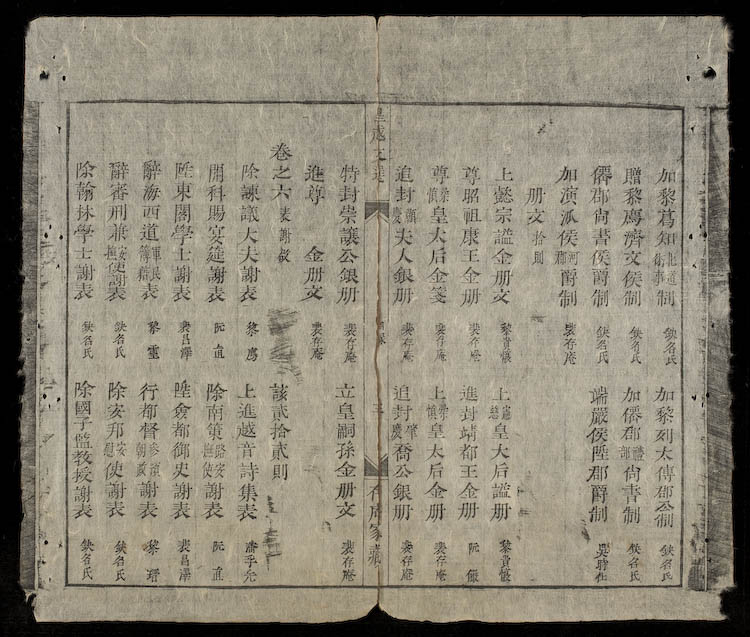 加黎蔦知北道衛事制 缺名氏 加黎列太傅郡公制 缺名氏
贈黎專濟文侯制 缺名氏 加僊郡禮部尚書制 缺名氏
僊郡尚書侯爵制 缺名氏 端嚴侯陞郡爵制 吳時仕
加演派侯河郡爵制 裴存庵
册文 拾則
上懿宗謚金册文 黎貴惇 上慈皇太后謚册 黎貴惇
尊昭祖康王金册 裴存庵 進封靖都王金册 阮儼
尊榮慎皇太后金箋 裴存庵 上榮慎皇太后金册 裴存庵
追封慶夫人銀册 裴存庵 追封肇慶喬公銀册 裴存庵
皇越文選 三 存庵家藏
特封崇讓公銀册 裴存庵 立皇嗣孫金册文 裴存庵
進尊 金册文 裴存庵
卷之六 表謝啟 該貳拾貳則
除諫議大夫謝表 黎廌 上進越音詩集表 潘孚先
開科賜宴筵謝表 阮直 除南策路安撫使謝表 阮直
陞東閣學士謝表 裴昌澤 陞僉都御史謝表 裴昌澤
辭海西道軍民簿籍表 黎靈 行都督參預朝政謝表 黎瑨
辭審刑兼安撫使謝表 缺名氏 除安邦安慰使謝表 缺名氏
除翰林學士謝表 缺名氏 除國子監教授謝表 缺名氏